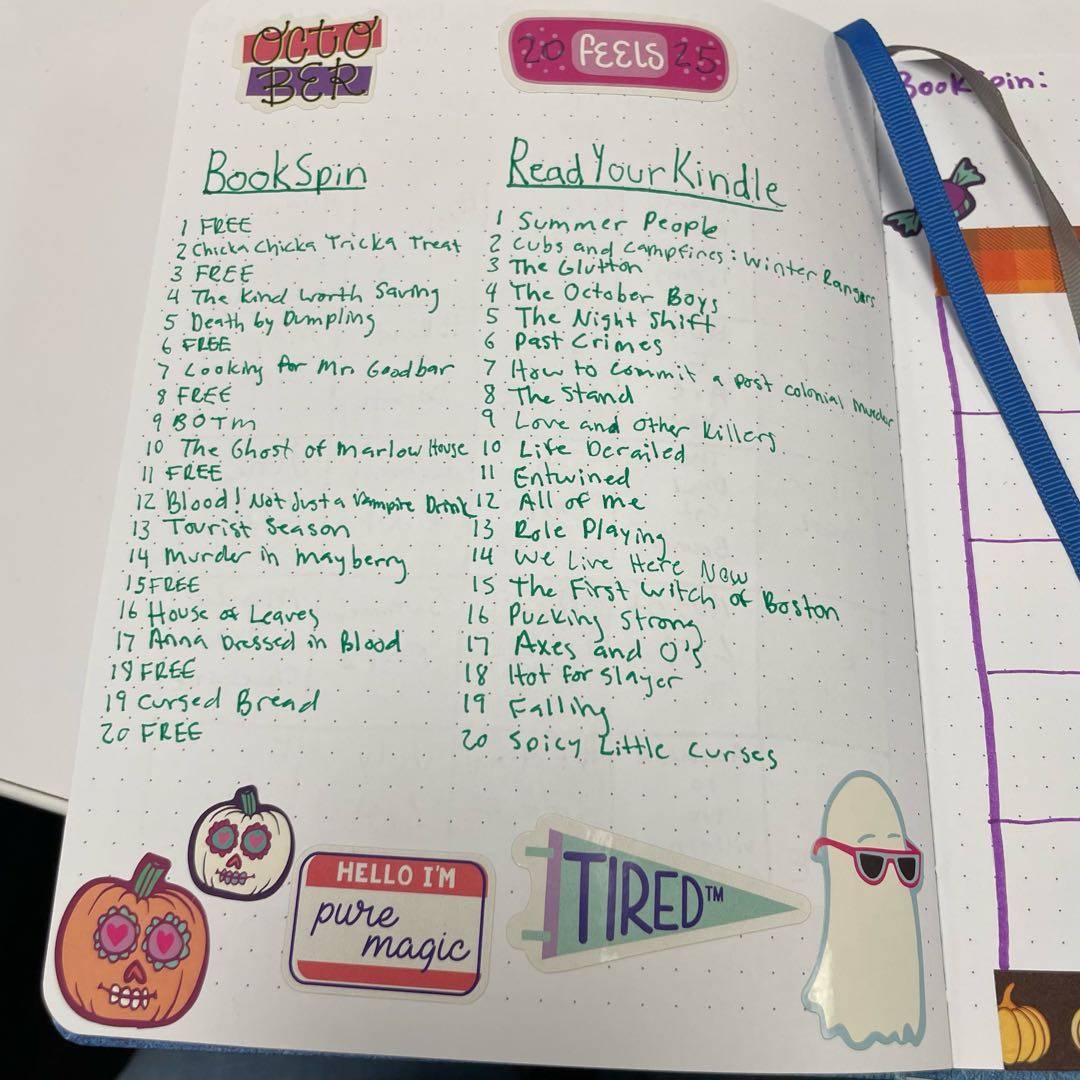 OCTO
BER
20 FEELS 25
BookSpin:
BookSpin
1 FREE
2 Chicka Chicka Tricka Treat
3 FREE
4 The Kind Worth Saving
5 Death by Dumpling
6 FREE
7 Looking for Mr. Goodbar
8 FREE
9 BOTM
10 The Ghost of Marlow House
11 FREE
12 Blood! Not Just a Vampire Drink
13 Tourist Season
14 Murder in Mayberry
15 FREE
16 House of Leaves
17 Anna Dressed in Blood
18 FREE
19 Cursed Bread
20 FREE
Read Your Kindle
1 Summer People
2 Cubs and Campfires: Winter Rangers
3 The Glutton
4 The October Boys
5 The Night Shift
6 Past Crimes
7 How to Commit a Post colonial Murder
8 The Stand
9 Love and Other Killers
10 Life Derailed
11 Entwined
12 All of me
13 Role Playing
14 We Live Here Now
15 The First Witch of Boston
16 Pucking Strong
17 Axes and O's
18 Hot for Slayer
19 Falling
20 Spicy Little Curses
HELLO I'M
pure
magic
TIRED™